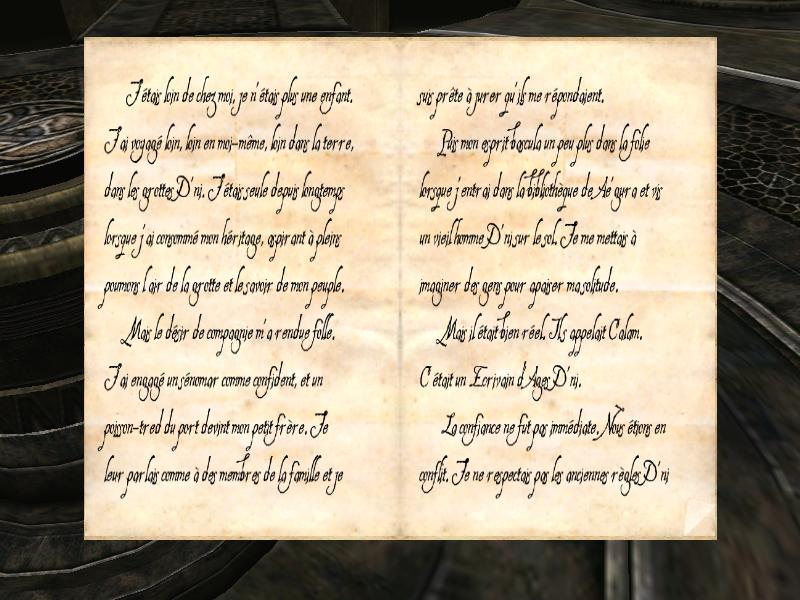 J'étais loin de chez moi, je n'étais plus une enfant.
J'ai voyagé loin, loin en moi-même, loin dans la terre,
dans les grottes D'ni. J'étais seule depuis longtemps
lorsque j'ai consommé mon héritage, aspirant à pleins
poumons l'air de la grotte et le savoir de mon peuple.
Mais le désir de compagnie m'a rendue folle.
J'ai engagé un sénomar comme confident, et un
poisson-tred du port devint mon petit frère. Je
leur parlais comme à des membres de la famille et je
suis prête à jurer qu'ils me répondaient.
Puis mon esprit bascula un peu plus dans la folie
lorsque j'entrai dans la bibliothèque de Aé'gura et vis
un vieil homme D'ni sur le sol. Je me mettais à
imaginer des gens pour apaiser ma solitude.
Mais il était bien réel. Ils appelait Calam.
C'était un Ecrivain d'Ages D'ni.
La confiance ne fut pas immédiate. Nous étions en
conflit. Je ne respectais pas les anciennes règles D'ni